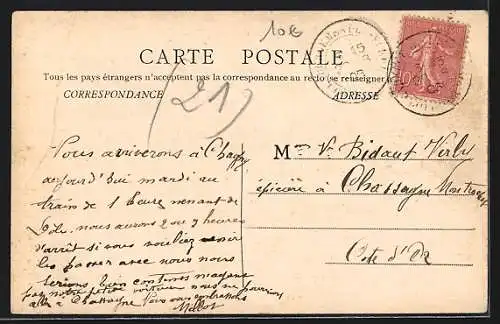 10G
CARTE POSTALE
Tous les pays étrangers n'acceptent pas la correspondance au recto (se renseigner
CORRESPONDANCE
ADRESSE
(21)
Nous arriverons à Chagny
aujourd'hui mardi au
train de 1 heure venant de
nous aurons 2 ou 3 heures
d'arrêt si vous vouliez venir
les passer avec nous nous
serions bien contents
par notre petite voiture nous ne pourrions
aller à Chassagne
Millot
Mme V. Bidaut Virly
épicière à Chassagne Montrachet
Cote d'Or